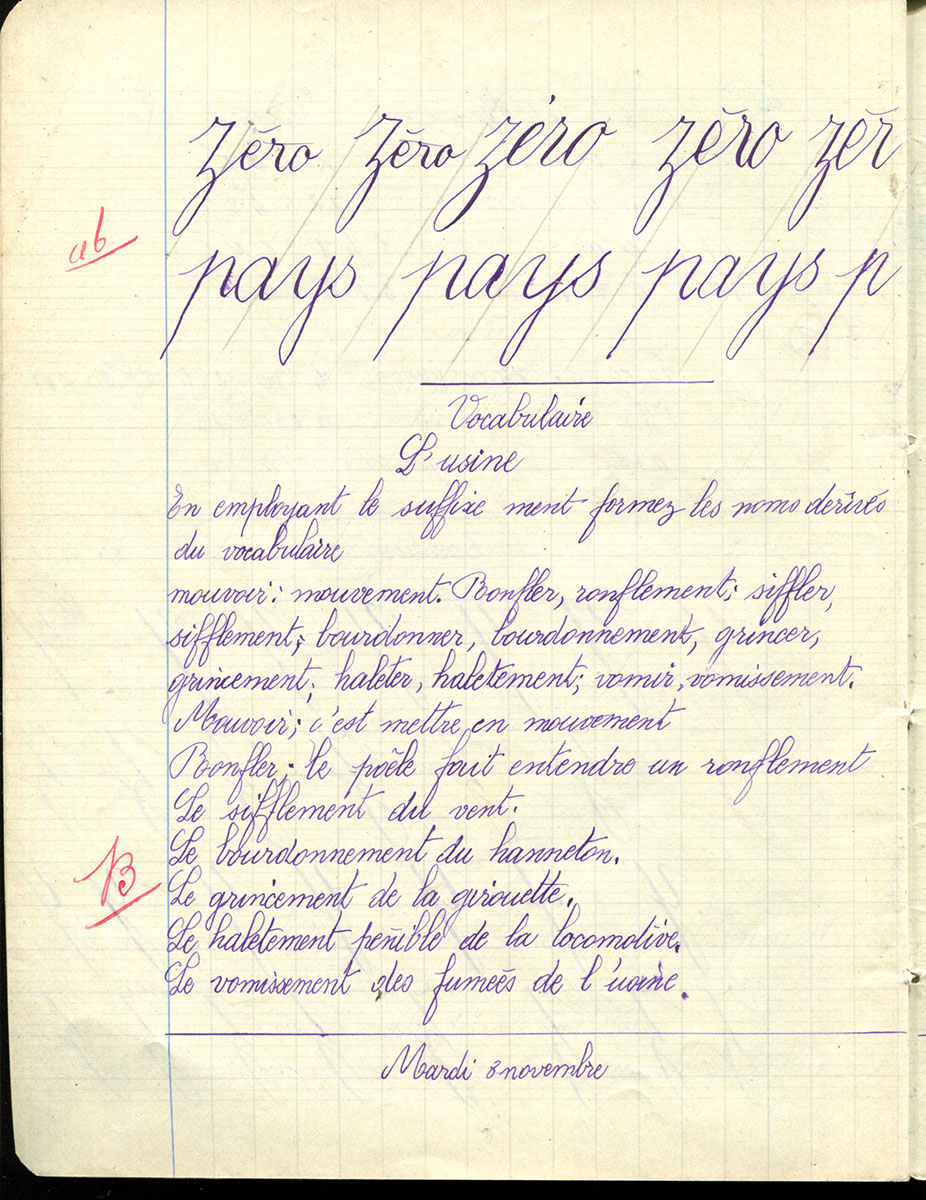 zéro zéro zéro zéro zér
ab
pays pays pays p
Vocabulaire
L'usine
En employant le suffixe ment formez les noms dérivés
du vocabulaire
mouvoir: mouvement. Ronfler, ronflement; siffler,
sifflement; bourdonner, bourdonnement, grincer,
grincement; haleter, haletement; vomir, vomissement.
Mouvoir; c'est mettre en mouvement
Ronfler; le poêle fait entendre un ronflement
Le sifflement du vent.
Le bourdonnement du hanneton.
B
Le grincement de la girouette.
Le haletement pénible de la locomotive.
Le vomissement des fumées de l'usine.
Mardi 8 novembre